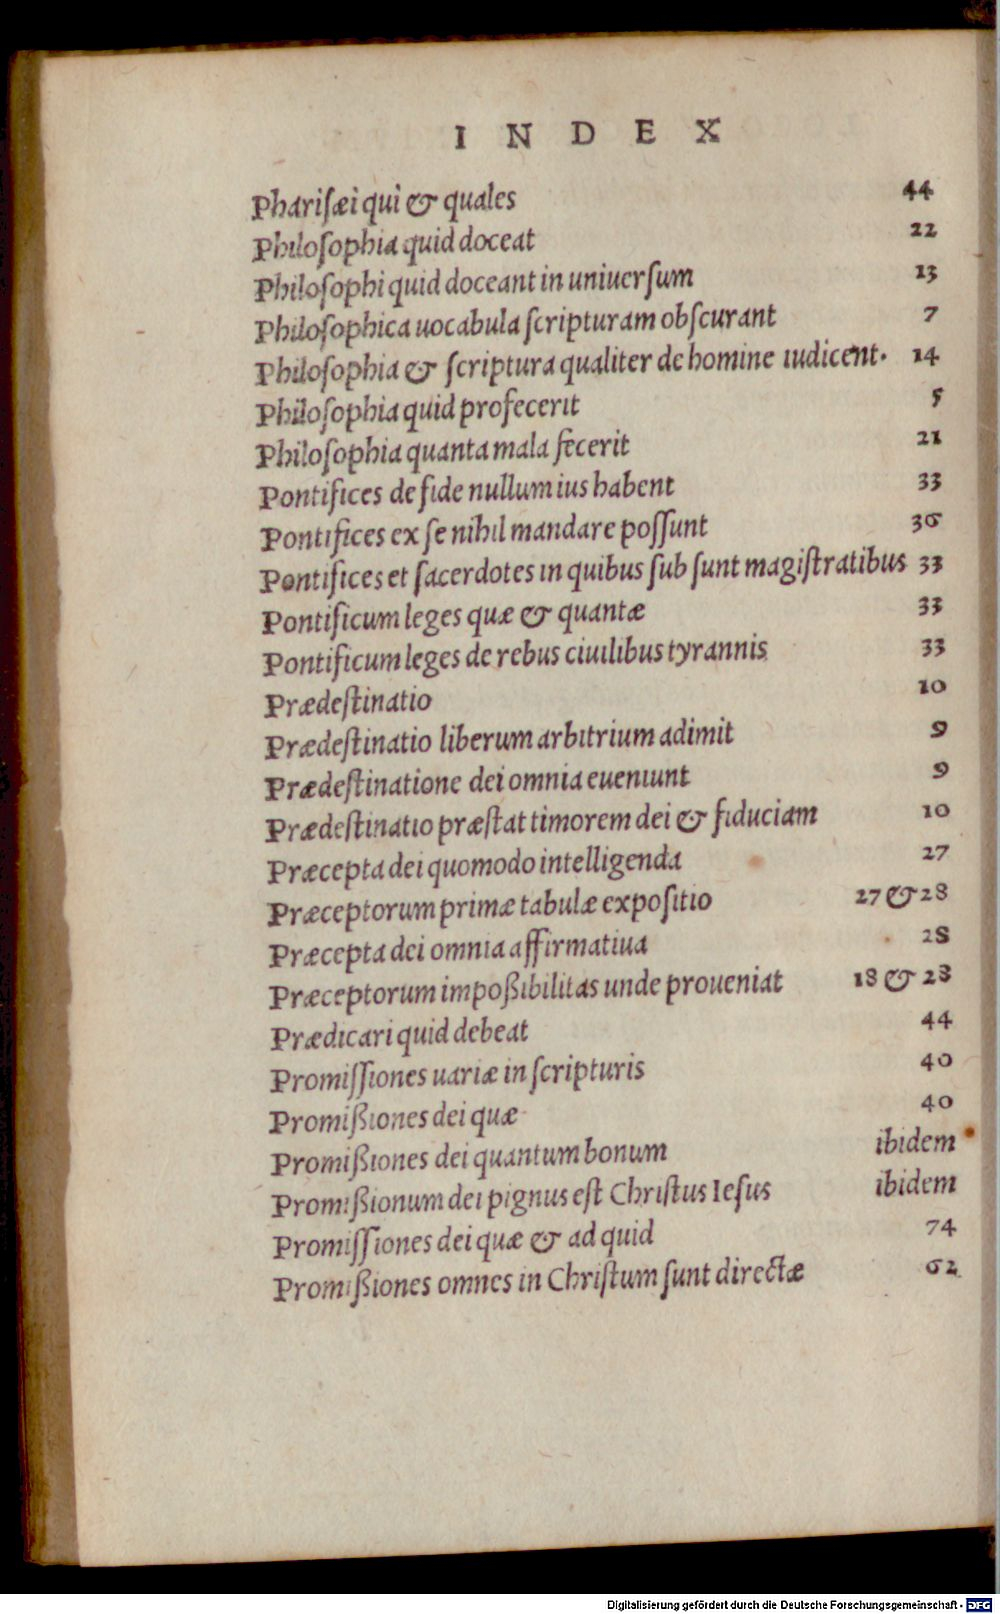 INDEX
Phariſæi qui & quales 44
Philoſophia quid doceat 22
Philoſophi quid doceant in uniuerſum 13
Philoſophica uocabula ſcripturam obſcurant 7
Philoſophia & ſcriptura qualiter de homine iudicent. 14
Philoſophia quid profecerit 5
Philoſophia quanta mala fecerit 21
Pontifices de fide nullum ius habent 33
Pontifices ex ſe nihil mandare poſſunt 36
Pontifices et ſacerdotes in quibus ſub ſunt magiſtratibus 33
Pontificum leges quæ & quantæ 33
Pontificum leges de rebus ciuilibus tyrannis 33
Prædeſtinatio 10
Prædeſtinatio liberum arbitrium adimit 9
Prædeſtinatione dei omnia eueniunt 9
Prædeſtinatio præſtat timorem dei & fiduciam 10
Præcepta dei quomodo intelligenda 27
Præceptorum primæ tabulæ expoſitio 27 & 28
Præcepta dei omnia affirmatiua 28
Præceptorum impoßibilitas unde proueniat 18 & 28
Prædicari quid debeat 44
Promiſſiones uariæ in ſcripturis 40
Promißiones dei quæ 40
Promißiones dei quantum bonum ibidem
Promißionum dei pignus eſt Chriſtus Ieſus ibidem
Promiſſiones dei quæ & ad quid 74
Promißiones omnes in Chriſtum ſunt directæ 62
Digitalisierung gefördert durch die Deutsche Forschungsgemeinschaft - DFG